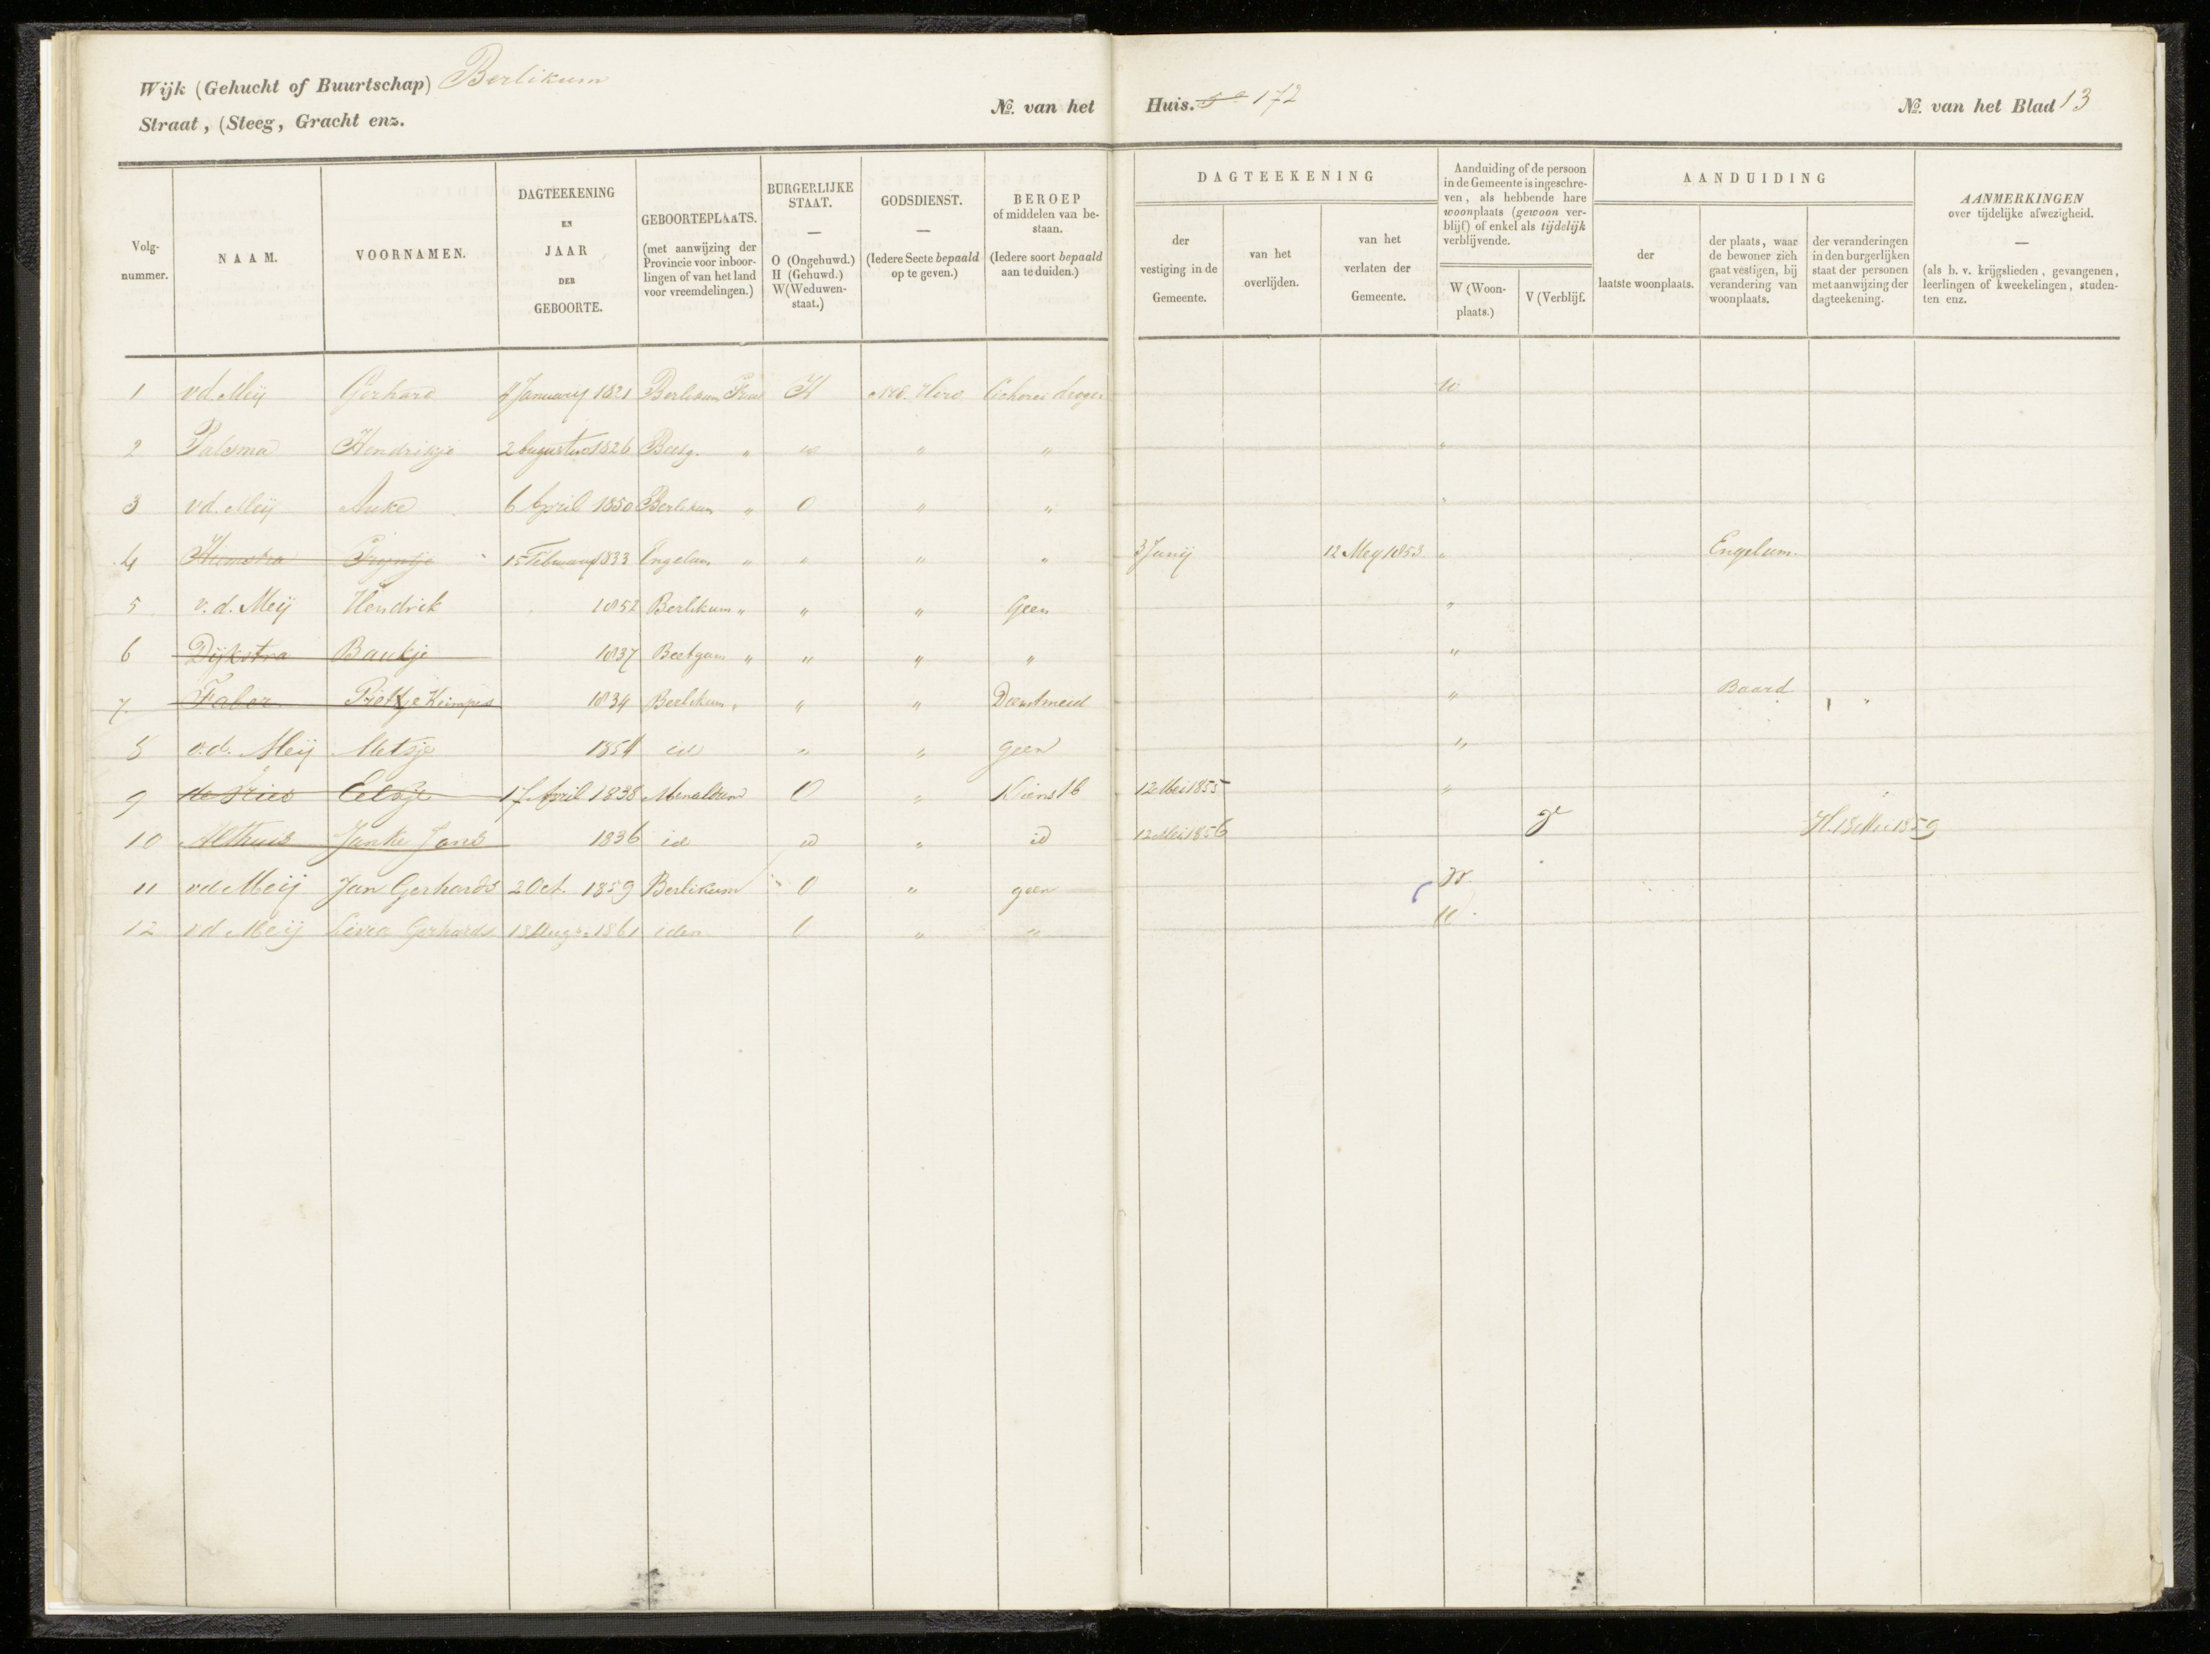 Wijk (Gehucht of Buurtschap) Berlikum
Straat, (Steeg, Gracht enz.
No. van het Huis. 172
No. van het Blad 13
Volgnummer.
NAAM.
VOORNAMEN.
DAGTEEKENING EN JAAR DER GEBOORTE.
GEBOORTEPLAATS. (met aanwijzing der Provincie voor inboorlingen of van het land voor vreemdelingen.)
BURGERLIJKE STAAT. — O (Ongehuwd.) H (Gehuwd.) W (Weduwenstaat.)
GODSDIENST. — (Iedere Secte bepaald op te geven.)
BEROEP of middelen van bestaan. (Iedere soort bepaald aan te duiden.)
DAGTEEKENING
der vestiging in de Gemeente.
van het overlijden.
van het verlaten der Gemeente.
Aanduiding of de persoon in de Gemeente is ingeschreven, als hebbende hare woonplaats (gewoon verblijf) of enkel als tijdelijk verblijvende.
W (Woonplaats.)
V (Verblijf.
AANDUIDING
der laatste woonplaats.
der plaats, waar de bewoner zich gaat vestigen, bij verandering van woonplaats.
der veranderingen in den burgerlijken staat der personen met aanwijzing der dagteekening.
AANMERKINGEN over tijdelijke afwezigheid. — (als b. v. krijgslieden, gevangenen, leerlingen of kweekelingen, studenten enz.
1 vd. Meij Gerhard 4 January 1821 Berlikum H Ned. Herv Cichorei droger W
2 Palsma Hendrikje 2 Augustus 1826 " " " "
3 vd. Meij Auke 6 April 1850 Berlikum " O " " "
4 Hiemstra Trijntje 15 February 1833 Engelum " " " " 3 Junij 12 Mey 1853 " Engelum.
5 v. d. Meij Hendrik 1852 Berlikum " " " Geen "
6 Dijkstra Baukje 1837 Beetgum " " " " "
7. Faber Pietje Keimpes 1834 Berlikum " " " Dienstmeid " Baard "
8 v.d. Meij Metsje 1854 id " " geen "
9 de Vries Eelsje 17 April 1838 Menaldum O " 12 Mei 1855 "
10 Althuis Janke Jans 1836 id id " id 12 Mei 1856 H. 18 Mei 1859
11 vd Meij Jan Gerhards 2 Oct. 1859 Berlikum O " geen W.
12 vd Meij Gerhards 18 Aug. 1861 idem O " " W.